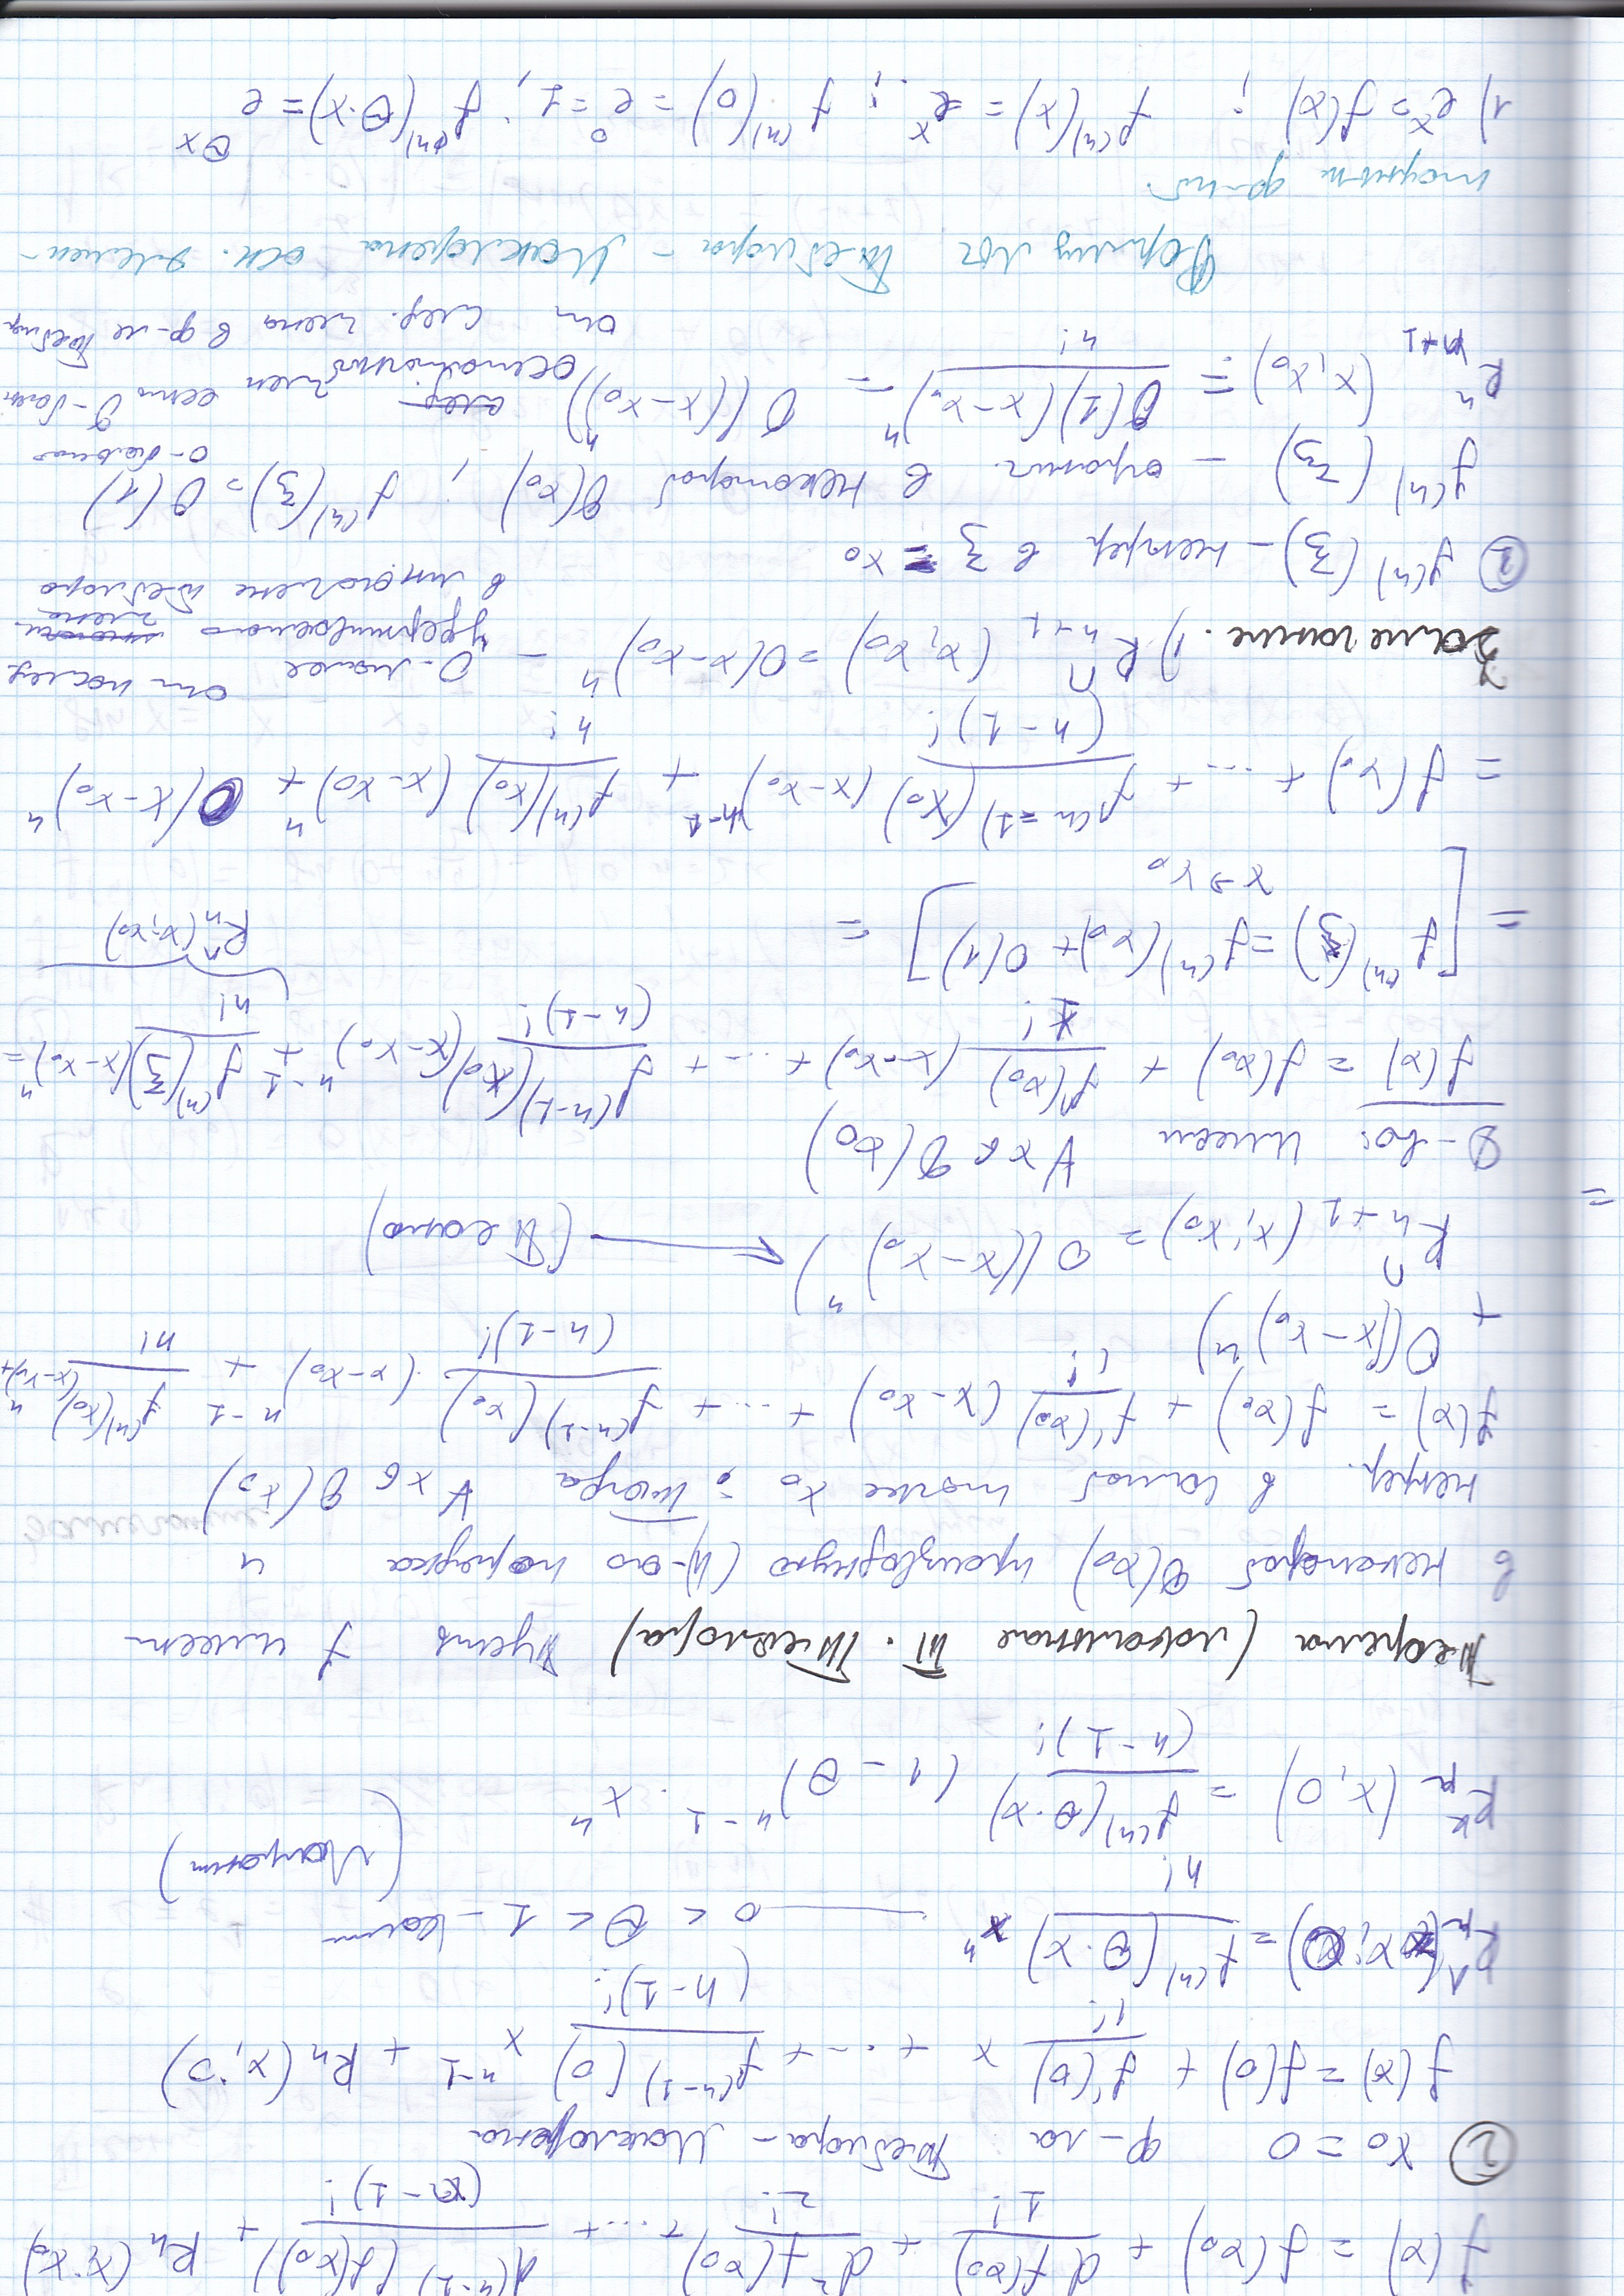 f(x) = f(x₀) + d f(x₀)/1! + d² f(x₀)/2! + ... + d^(n-1) (f(x₀))/(n-1)! + Rn (x; x₀)
② x₀ = 0 Ф-ла Тейлора - Маклорена
f(x) = f(0) + f'(0)/1! x + ... + f^(n-1)(0)/(n-1)! x^(n-1) + Rn(x; 0)
Rn^Л(x; 0) = f^(n)(θ·x)/n! x^n — 0 < θ < 1 -
(Лагранж)
Rn^k (x, 0) = f^(n)(θ·x)/(n-1)! (1-θ)^(n-1) · x^n
Теорема (локальная Т. Тейлора) Пусть f имеет
в некоторой O(x₀) производную (n)-ого порядка и
непрер. в самой точке x₀; Тогда ∀ x ∈ O(x₀)
f(x) = f(x₀) + f'(x₀)/1! (x-x₀) + ... + f^(n-1)(x₀)/(n-1)! · (x-x₀)^(n-1) + f^(n)(x₀)/n! (x-x₀)^n +
+ O((x-x₀)^n)
R^П_(n+1) (x; x₀) = o((x-x₀)^n) ← (Пеано)
=
Д-во: Имеем ∀ x ∈ O(x₀)
f(x) = f(x₀) + f'(x₀)/1! (x-x₀) + ... + f^(n-1)(x₀)/(n-1)! (x-x₀)^(n-1) + f^(n)(ξ)/n! (x-x₀)^n =
Rn^Л(x; x₀)
= [f^(n)(ξ) = f^(n)(x₀) + O(1)] =
x→x₀
= f(x₀) + ... + f^(n-1)(x₀)/(n-1)! (x-x₀)^(n-1) + f^(n)(x₀)/n! (x-x₀)^n + O(x-x₀)^n
Замечание. 1) R^П_(n+1) (x, x₀) = O(x-x₀)^n - O-малое от послед
удерживаемого члена
в многочлене Тейлора
② f^(n) (ξ) - непрер в ξ = x₀
f^(n) (ξ) - огранич. в некоторой O(x₀); f^(n)(ξ) = O(1)
о-большое
R^n_(n+1) (x, x₀) = O(1)(x-x₀)^n/n! = O((x-x₀)^n) след
остаточный член есть O-больш
от след. члена в ф-ле Тейлор
Формулы Тейлора - Маклорена осн. элемен-
тарных ф-ий.
1) e^x = f(x); f^(n)(x) = e^x; f^(n)(0) = e^0 = 1; f^(n)(θ·x) = e^(θx)